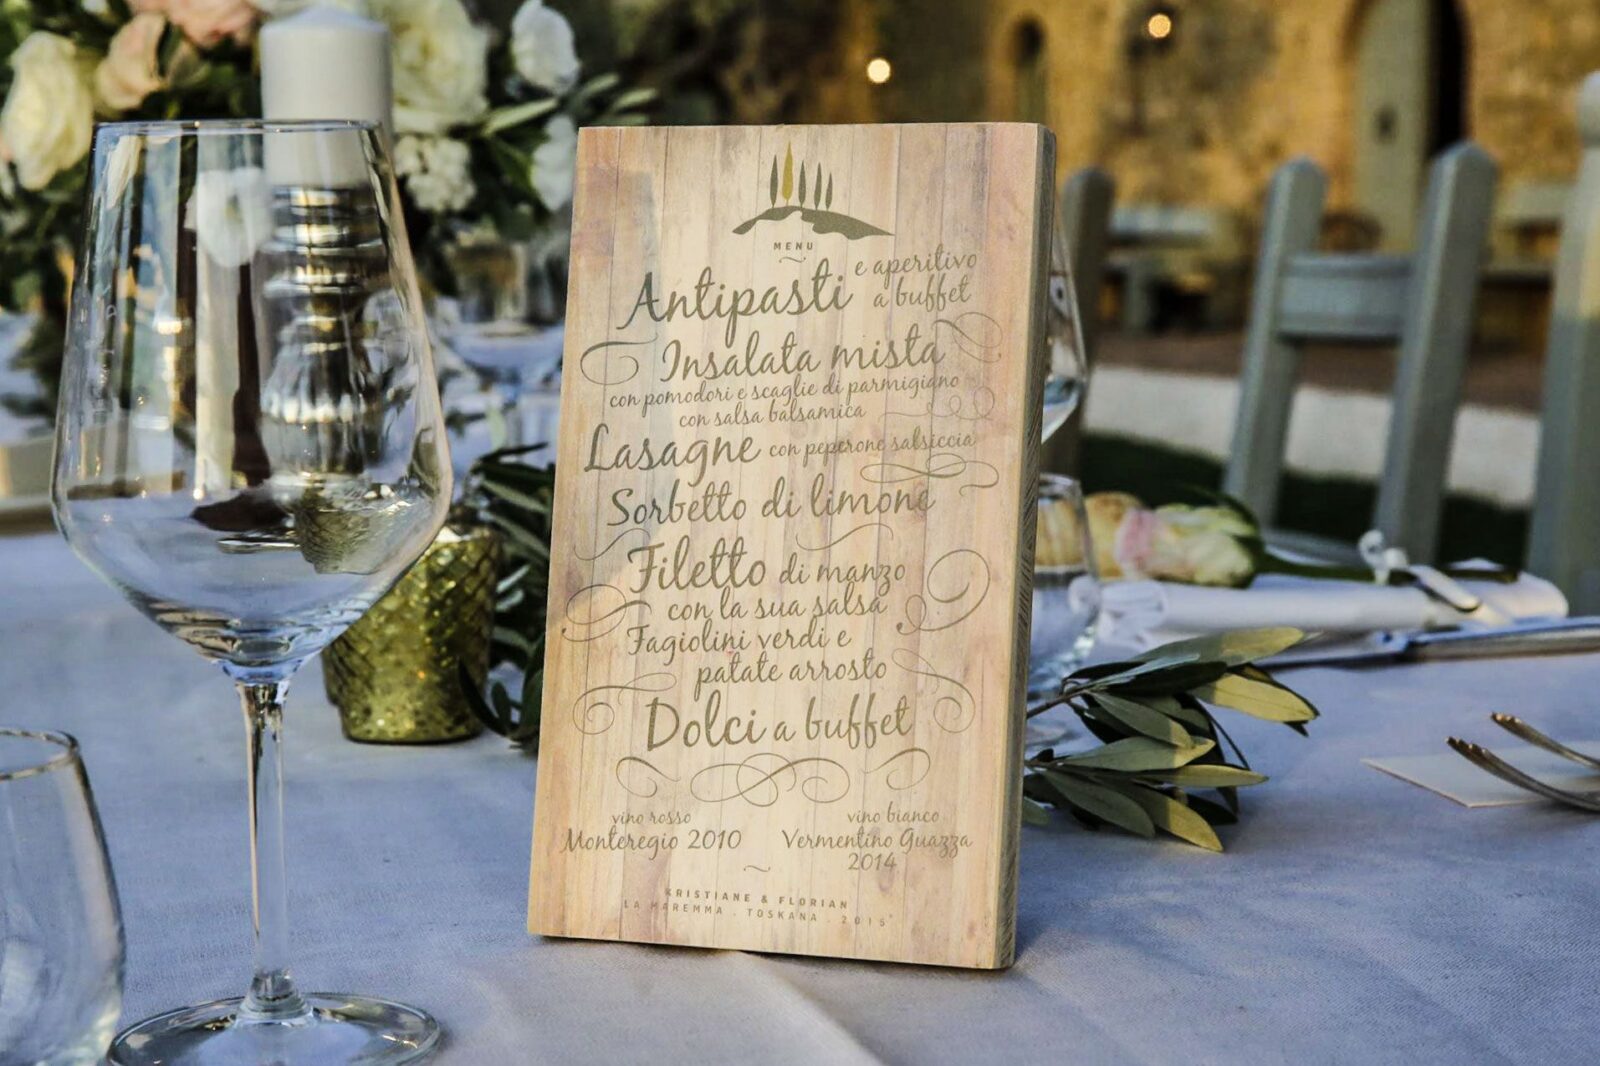 MENU
Antipasti e aperitivo
a buffet
Insalata mista
con pomodori e scaglie di parmigiano
con salsa balsamica
Lasagne con peperone salsiccia
Sorbetto di limone
Filetto di manzo
con la sua salsa
Fagiolini verdi e
patate arrosto
Dolci a buffet
vino rosso
Monteregio 2010
vino bianco
Vermentino Guazza
2014
KRISTIANE & FLORIAN
LA MAREMMA . TOSKANA . 2015